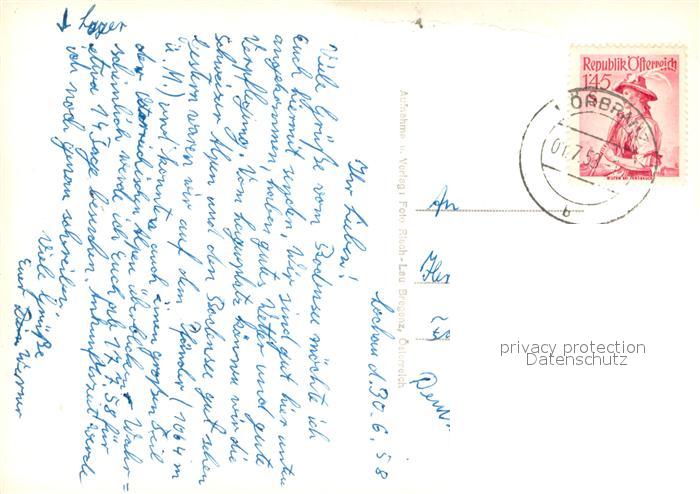 Lochau d. 30.6.58
Ihr Lieben!
Viele Grüße vom Bodensee möchte ich
Euch hiermit senden. Wir sind gut hier unten
angekommen, haben gutes Wetter und gute
Verpflegung. Vom Lagerplatz können wir die
Schweizer Alpen und den Bodensee gut sehen
Gestern waren wir auf dem Pfänder (1064 m
ü. M) und konnte auch einen großen Teil
der österreichischen Alpen überblicken. Wahr=
scheinlich werde ich Euch ab 17.7.58 für
etwa 14 Tage besuchen. Ankunftszeit werde
ich noch genau schreiben.
Viele Grüße
Euer Werner
↓ Lager
Aufnahme u. Verlag: Foto Risch-Lau Bregenz, Österreich
An
Republik Österreich
145
HÖRBRANZ
01.7.58
b
privacy protection
Datenschutz